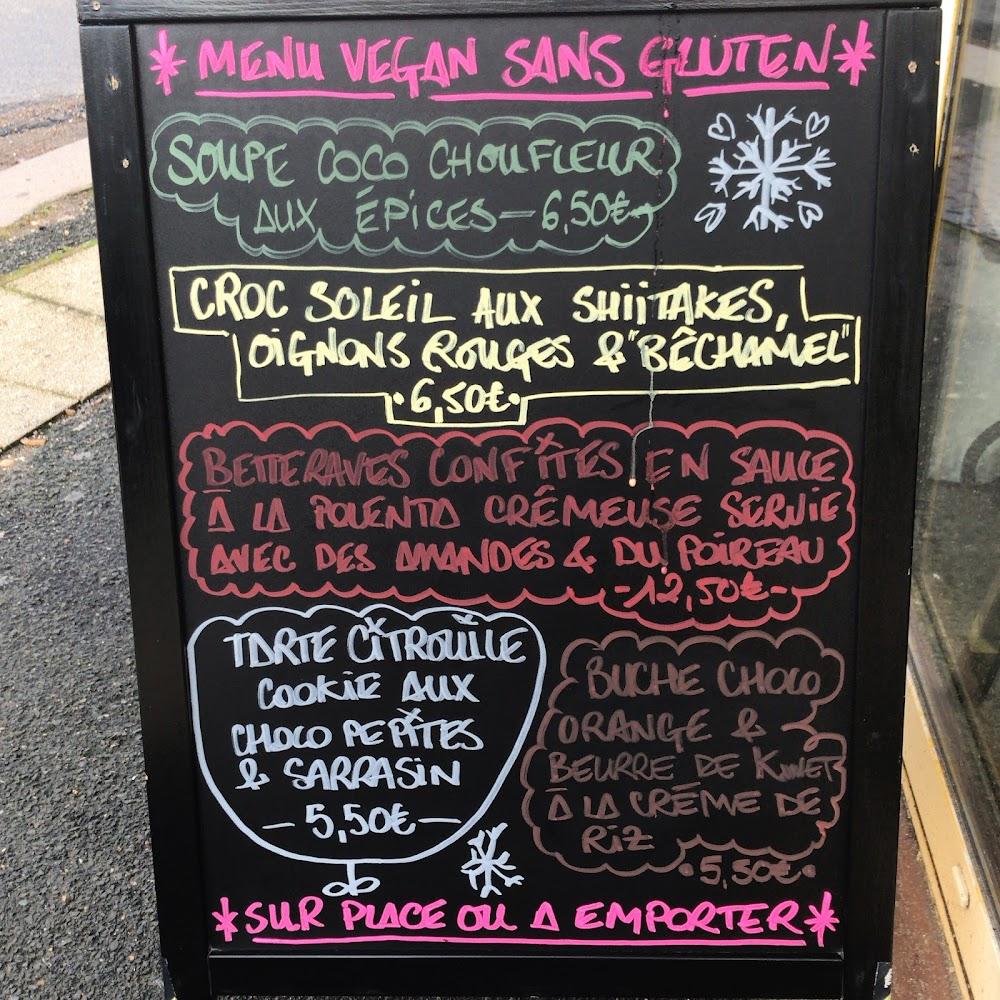 * MENU VEGAN SANS GLUTEN *
SOUPE COCO CHOUFLEUR
AUX ÉPICES — 6,50€
CROC SOLEIL AUX SHIITAKES,
OIGNONS ROUGES & "BÊCHAMEL"
·6,50€·
BETTERAVES CONFITES EN SAUCE
À LA POLENTA CRÊMEUSE SERVIE
AVEC DES AMANDES & DU POIREAU
-12,50€-
TARTE CITROUILLE
COOKIE AUX
CHOCO PEPITES
& SARRASIN
— 5,50€ —
BUCHE CHOCO
ORANGE &
BEURRE DE
À LA CRÊME DE
RIZ
·5,50€·
*SUR PLACE OU A EMPORTER*